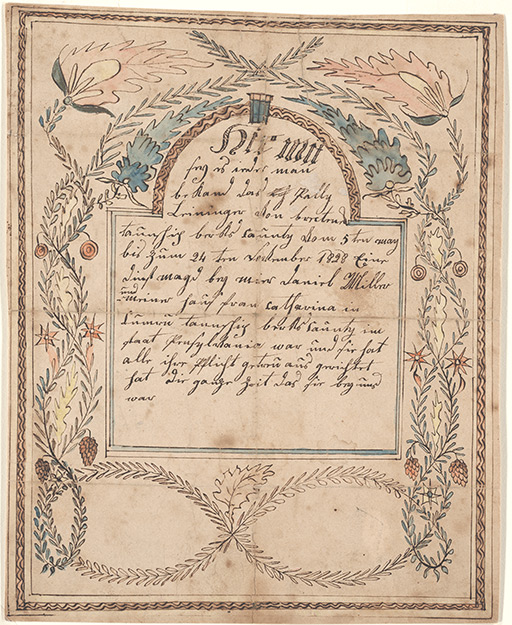 Hir mit
sey es ieder man
bekand das ich Polly
Leininger von
taunschip berks caunty vom 5ten may
bis zum 24ten december 1828 Eine
dinst magd bey mier daniel Miller
und
meiner haus frau catharina in
cumru taunschip berks caunty im
staat Pensylvania war und sie hat
alle ihre Pflicht getreu aus gerichtet
hat die ganze Zeit das sie bey uns
war